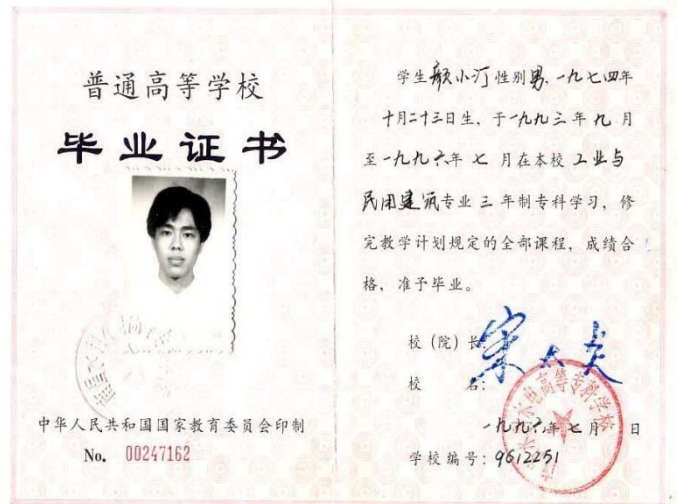 普通高等学校
毕业证书
中华人民共和国国家教育委员会印制
No. 00247162
学生颜小汀性别男,一九七四年
十月二十三日生,于一九九三年九月
至一九九六年七月在本校工业与
民用建筑专业三年制专科学习,修
完教学计划规定的全部课程,成绩合
格,准予毕业。
校(院)长:
校 名:
水电高等专科学校
一九九六年七月 日
学校编号:9612251